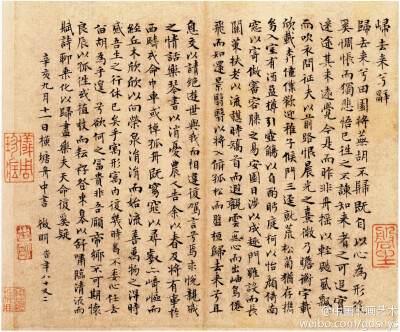 歸去來兮辭
歸去來兮田園將蕪胡不歸既自以心為形役
奚惆悵而獨悲悟已往之不諫知來者之可追寔
迷途其未遠覺今是而昨非舟搖搖以輕颺風飄飄
而吹衣問征夫以前路恨晨光之熹微乃瞻衡宇載
欣載奔僮僕歡迎稚子候門三逕就荒松菊猶存攜
幼入室有酒盈樽引壺觴以自酌眄庭柯以怡顏倚南
窗以寄傲審容膝之易安園日涉以成趣門雖設而長
關策扶老以流憩時矯首而遐觀雲無心而出岫鳥倦
飛而知還景翳翳以將入撫孤松而盤桓歸去來兮
息交以請絕遊世與我而相違復駕言兮焉求悅親戚
之情話樂琴書以消憂農人告余以春及將有事於
西疇或命巾車或棹孤舟既窈窕以尋壑亦崎嶇而
經丘木欣欣以向榮泉涓涓而始流善萬物之得時
感吾生之行休已矣乎寓形宇內復幾時曷不委心任去
留胡為乎遑遑兮欲何之富貴非吾願帝鄉不可期懷
良辰以孤往或植杖而耘耔登東皋以舒嘯臨清流而
賦詩聊乘化以歸盡樂夫天命復奚疑
辛亥九月十一日橫塘舟中書 徵明 年八十又二
@中国书画艺术
weibo.com/gdshyx